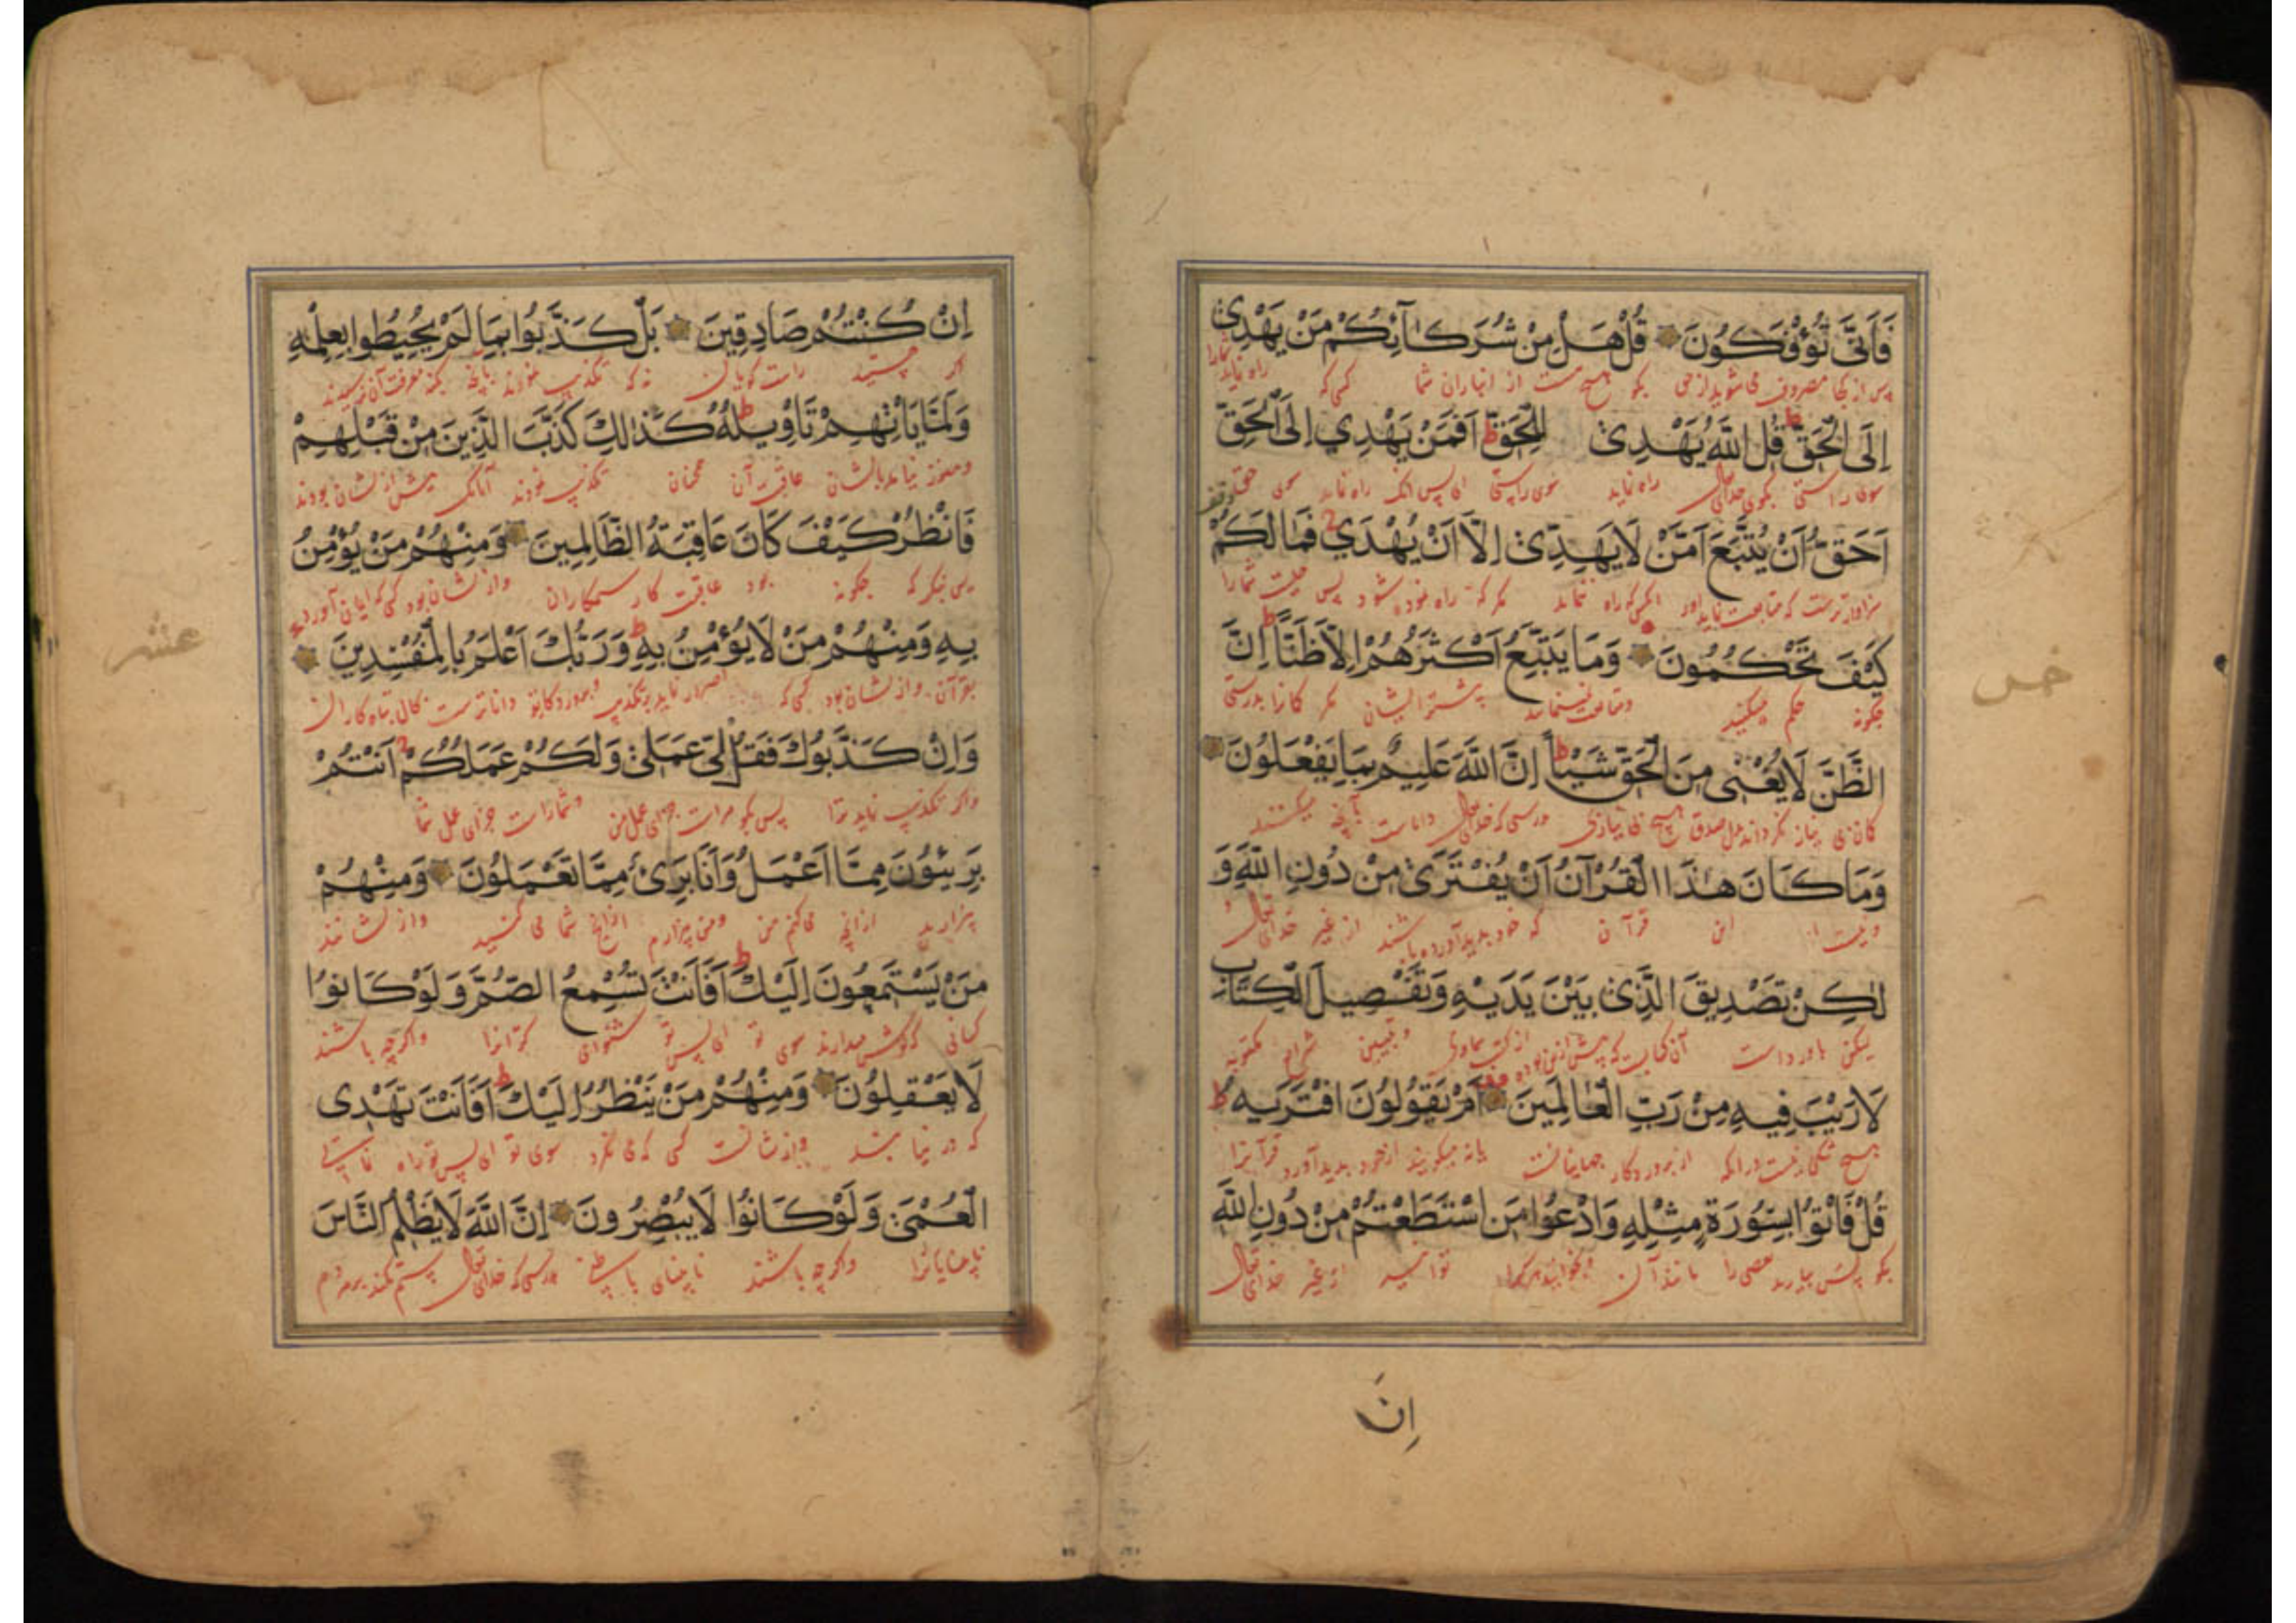 فَاَنّٰى تُؤْفَكُونَ قُلْ هَلْ مِنْ شُرَكَآئِكُمْ مَنْ يَهْدِىٓ
پس از کجا مصروف می شوید از حق بگو هیچ هست از انبازان شما کسی که راه نماید شما را
اِلَى الْحَقِّ ط قُلِ اللّٰهُ يَهْدِى لِلْحَقِّ ط اَفَمَنْ يَهْدِي اِلَى الْحَقِّ
سوی راستی بگوی خدای تعالی راه نماید سوی راستی ای پس آنک راه نماید سوی حق
اَحَقُّ اَنْ يُتَّبَعَ اَمَّنْ لَا يَهِدِّى اِلَّا اَنْ يُهْدٰي فَمَا لَكُمْ
سزاوارترست که متابعت نماید اور راه ننماید مگر که راه نموده شود پس چیست شما را
كَيْفَ تَحْكُمُونَ وَمَا يَتَّبِعُ اَكْثَرُهُمْ اِلَّا ظَنًّا ط اِنَّ
چگونه حکم میکنید بیشتر ایشان مگر گمانرا بدرستی
الظَّنَّ لَا يُغْنِى مِنَ الْحَقِّ شَيْئًا ط اِنَّ اللّٰهَ عَلِيمٌ بِمَا يَفْعَلُونَ
هیچ بی نیازی بدرستی که خدای تعالی داناست بآنچه میکنند
وَمَا كَانَ هٰذَا الْقُرْآنُ اَنْ يُفْتَرٰى مِنْ دُونِ اللّٰهِ وَ
و نیست این قرآن که خود بدید آورده باشند از غیر خدای تعالی و
لٰكِنْ تَصْدِيقَ الَّذِى بَيْنَ يَدَيْهِ وَتَفْصِيلَ الْكِتَابِ
لیکن باور داشت آن کتابیست که پیش از کتب سماوی و تبیین شرایع مکتوبه
لَا رَيْبَ فِيهِ مِنْ رَبِّ الْعٰالَمِينَ اَمْ يَقُولُونَ افْتَرٰيهُ ط
هیچ شکی نیست درانکه از پروردگار جهانیانست یا نه میگویند از خود بدید آورد قرآنرا
قُلْ فَاْتُوا بِسُورَةٍ مِثْلِهِ وَادْعُوا مَنِ اسْتَطَعْتُمْ مِنْ دُونِ اللّٰهِ
بگو پس بیارید مانند آن و بخوانید توانید از غیر خدای تعالی
اِنَّ
خمس
اِنْ كُنْتُمْ صَادِقِينَ بَلْ كَذَّبُوا بِمَا لَمْ يُحِيطُوا بِعِلْمِهِ
اگر هستید راست گویان نه که تکذیب نمودند بآنچه بکنه معرفت آن نرسیدند
وَلَمَّا يَاْتِهِمْ تَاْوِيلُهُ ط كَذٰلِكَ كَذَّبَ الَّذِينَ مِنْ قَبْلِهِمْ
و هنوز نیامد بایشان عاقبت آن همچنان تکذیب نمودند آنانکه پیش از ایشان بودند
فَانْظُرْ كَيْفَ كَانَ عَاقِبَةُ الظَّالِمِينَ وَمِنْهُمْ مَنْ يُؤْمِنُ
پس بنگر که چگونه بود عاقبت کار ستمکاران و از ایشان بود کسی که ایمان آورد
بِهِ وَمِنْهُمْ مَنْ لَا يُؤْمِنُ بِهِ ط وَرَبُّكَ اَعْلَمُ بِالْمُفْسِدِينَ
بقرآن و از ایشان بود کسی که اصرار نماید بر تکذیب و پروردگار تو داناترست بحال تباه کاران
وَاِنْ كَذَّبُوكَ فَقُلْ لِى عَمَلِى وَلَكُمْ عَمَلُكُمْ اَنْتُمْ
و اگر تکذیب نماید ترا پس بگو مراست جزای عمل من و شماراست جزای عمل شما
بَرِيئُونَ مِمَّا اَعْمَلُ وَاَنَا بَرِىءٌ مِمَّا تَعْمَلُونَ وَمِنْهُمْ
بیزارید ازانچه می کنم من و من بیزارم ازانچه شما می کنید و از ایشانند
مَنْ يَسْتَمِعُونَ اِلَيْكَ ط اَفَاَنْتَ تُسْمِعُ الصُّمَّ وَلَوْ كَانُوا
کسانی که گوش میدارند سوی تو ای پس تو شنوای کرانرا و اگرچه باشند
لَا يَعْقِلُونَ وَمِنْهُمْ مَنْ يَنْظُرُ اِلَيْكَ ط اَفَاَنْتَ تَهْدِى
که در نیابند و از ایشانست کسی که می نگرد سوی تو ای پس تو راه نمایی
الْعُمْىَ وَلَوْ كَانُوا لَا يُبْصِرُونَ اِنَّ اللّٰهَ لَا يَظْلِمُ النَّاسَ
نابینایانرا و اگرچه باشند بدرستی که خدای تعالی ستم نکند بر مردم
عشر